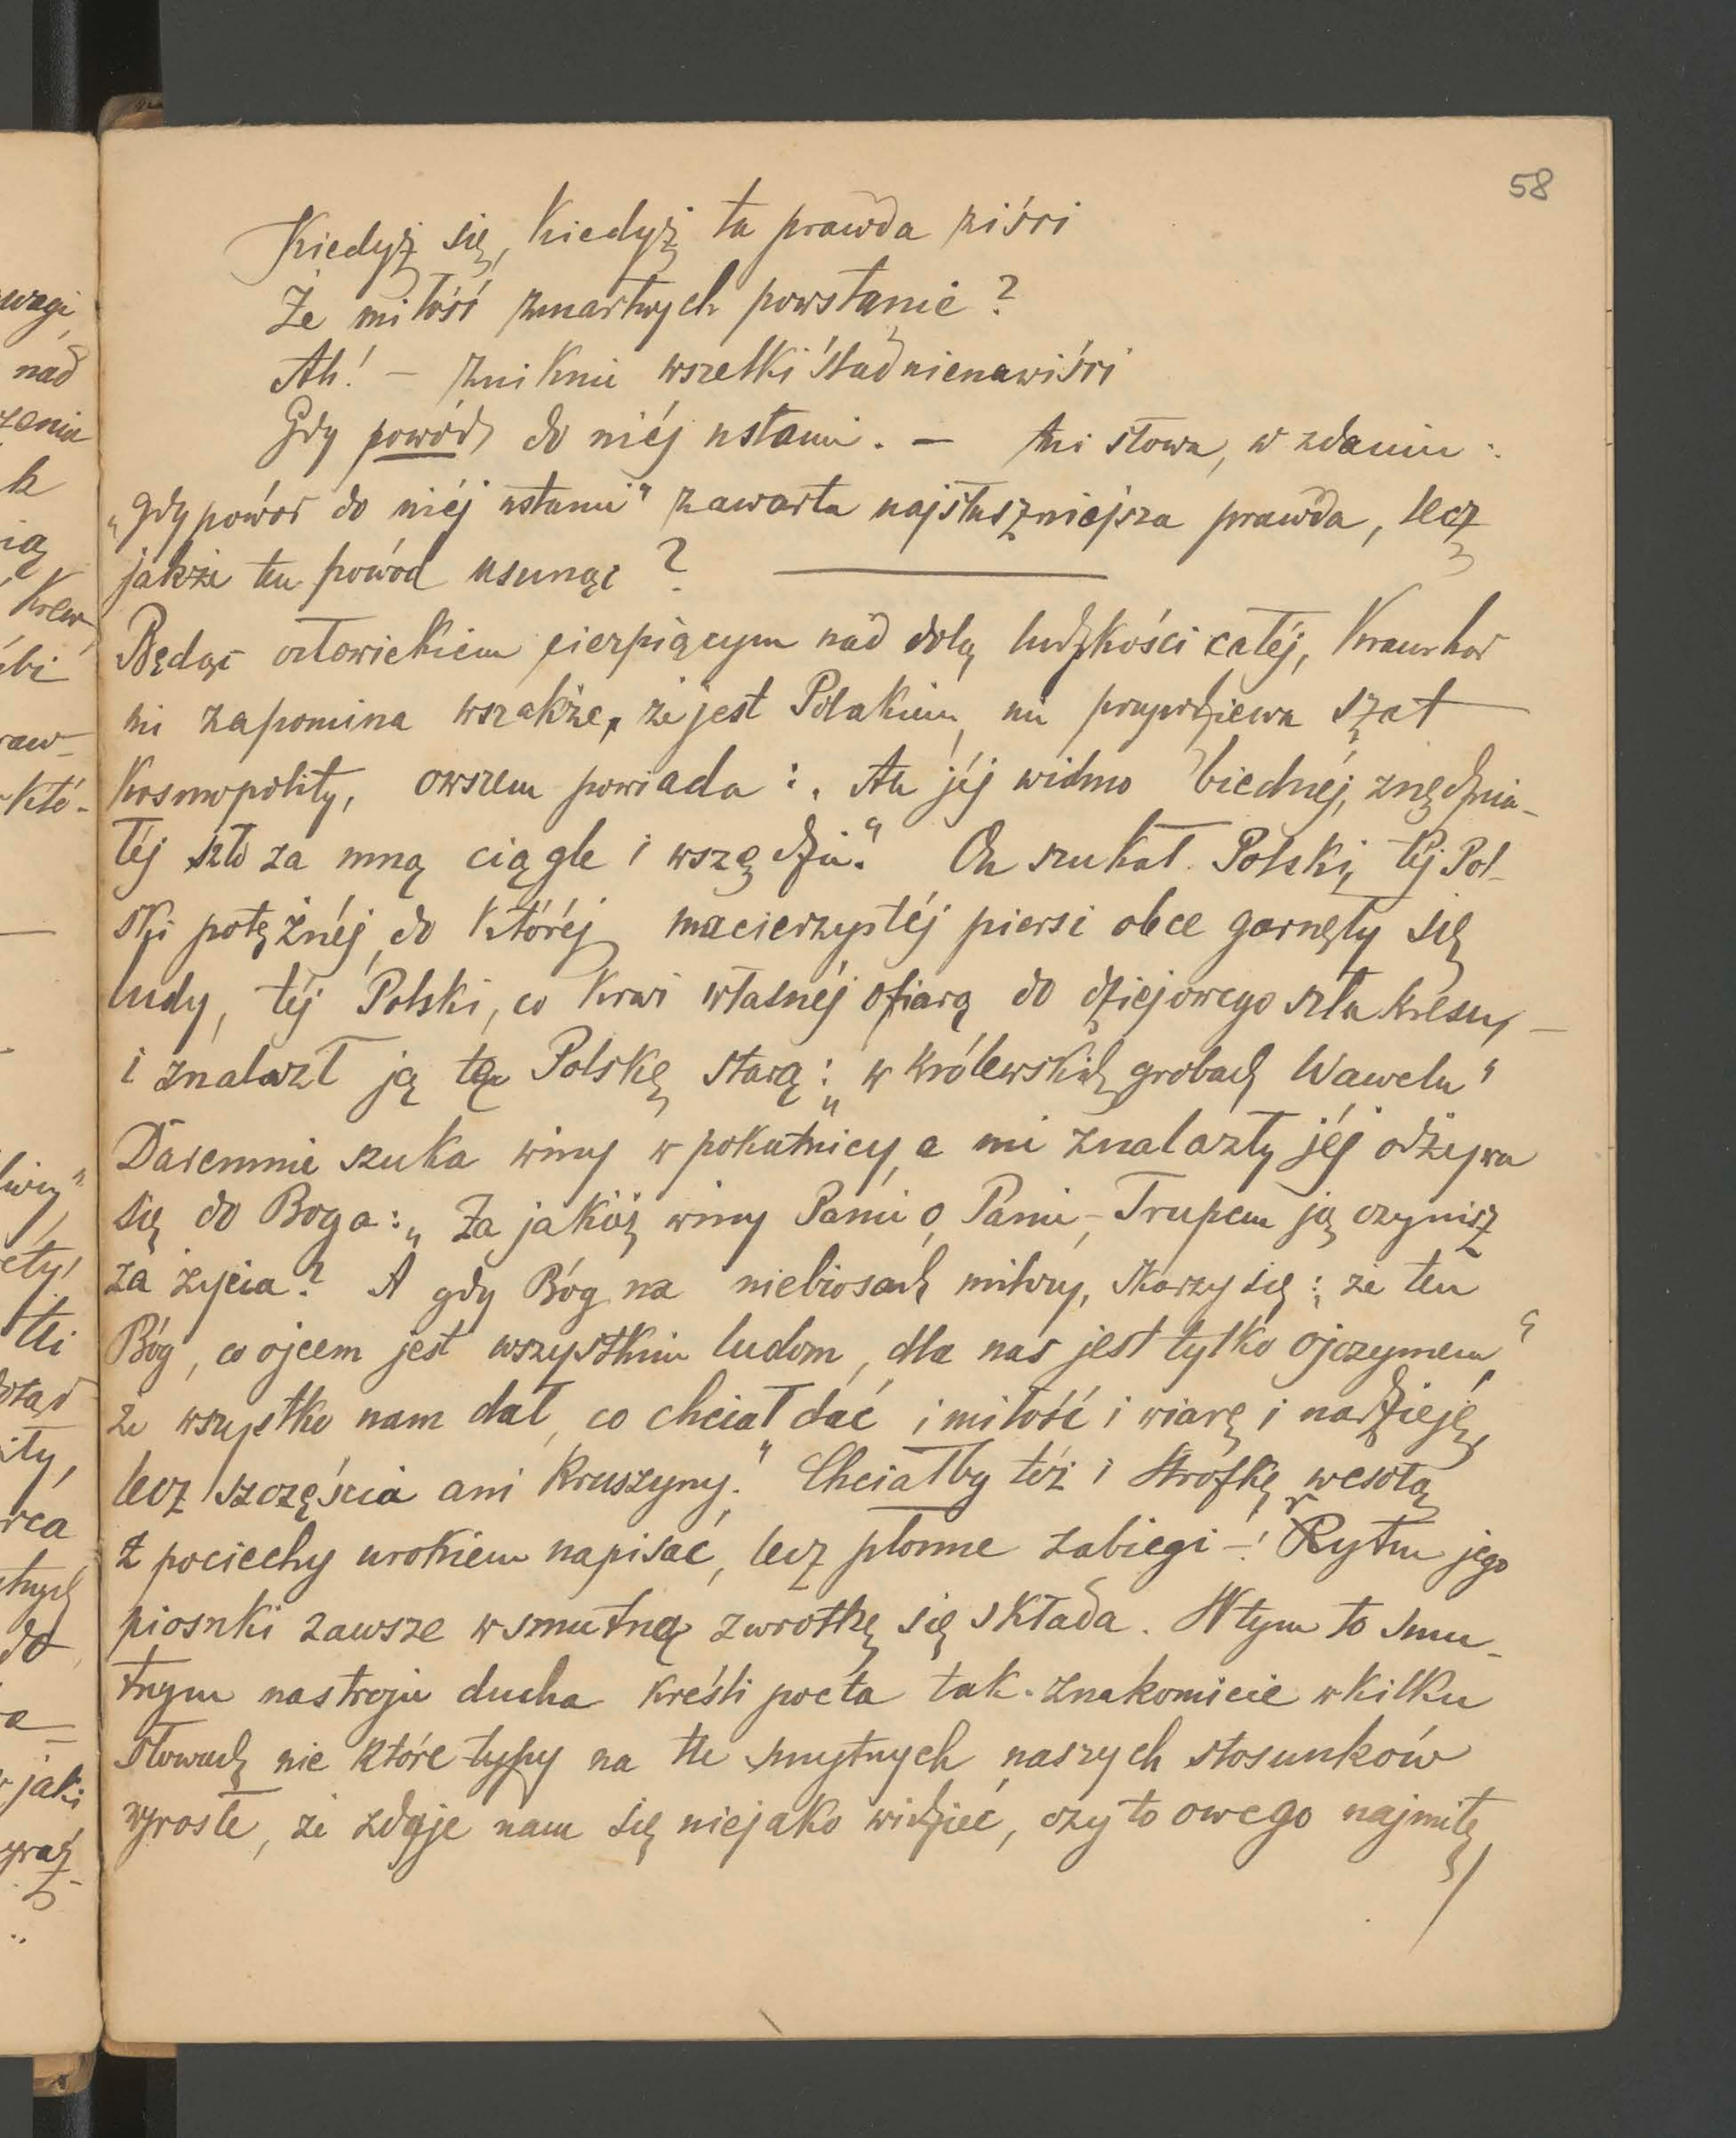 58
Kiedyż się, kiedyż ta prawda ziści
Że miłość zmartwych powstanie?
Ah! – zniknie wszelki ślad nienawiści
Gdy powód do niéj ustanie. – Ani słowa, w zdaniu:
„gdy powód do niéj ustanie" zawarta najsłuszniejsza prawda, lecz
jakże ten powód usunąć?
Będąc człowiekiem cierpiącym nad dolą ludzkości całéj, Kraushar
nie zapomina wszakże, że jest Polakiem, nie przywdziewa szat
kosmopolity, owszem powiada: „Ah jéj widmo biednéj, znędznia-
łéj szło za mną ciągle i wszędzie." On szukał Polski, téj Pol-
ski potężnéj, do któréj macierzystéj piersi obce garnęły się
ludy, téj Polski, co krwi własnéj ofiarą do dziejowego szła kresu, –
i znalazł ją tę Polskę starą: „w królewskich grobach Wawelu"
Daremnie szuka winy w pokutnicy, a nie znalazłszy jéj odzywa
się do Boga: „Za jakiéż winy Panie o, Panie, – Trupem ją czynisz
za życia? A gdy Bóg na niebiosach milczy, skarzy się: „że ten
Bóg, co ojcem jest wszystkim ludom, dla nas jest tylko ojczymem,"
że wszystko nam dał, co chciał dać i miłość i wiarę i nadzieję,
lecz szczęścia ani kruszyny." Chciałby też i strofkę wesołą
z pociechy urokiem napisać, lecz płonne zabiegi –! Rytm jego
piosnki zawsze w smutną zwrotkę się składa. W tym to smu-
tnym nastroju ducha kreśli poeta tak znakomicie w kilku
słowach nie które typy na tle smutnych naszych stosunków
wyrosłe, że zdaje nam się niejako widzieć, czy to owego najmitę,